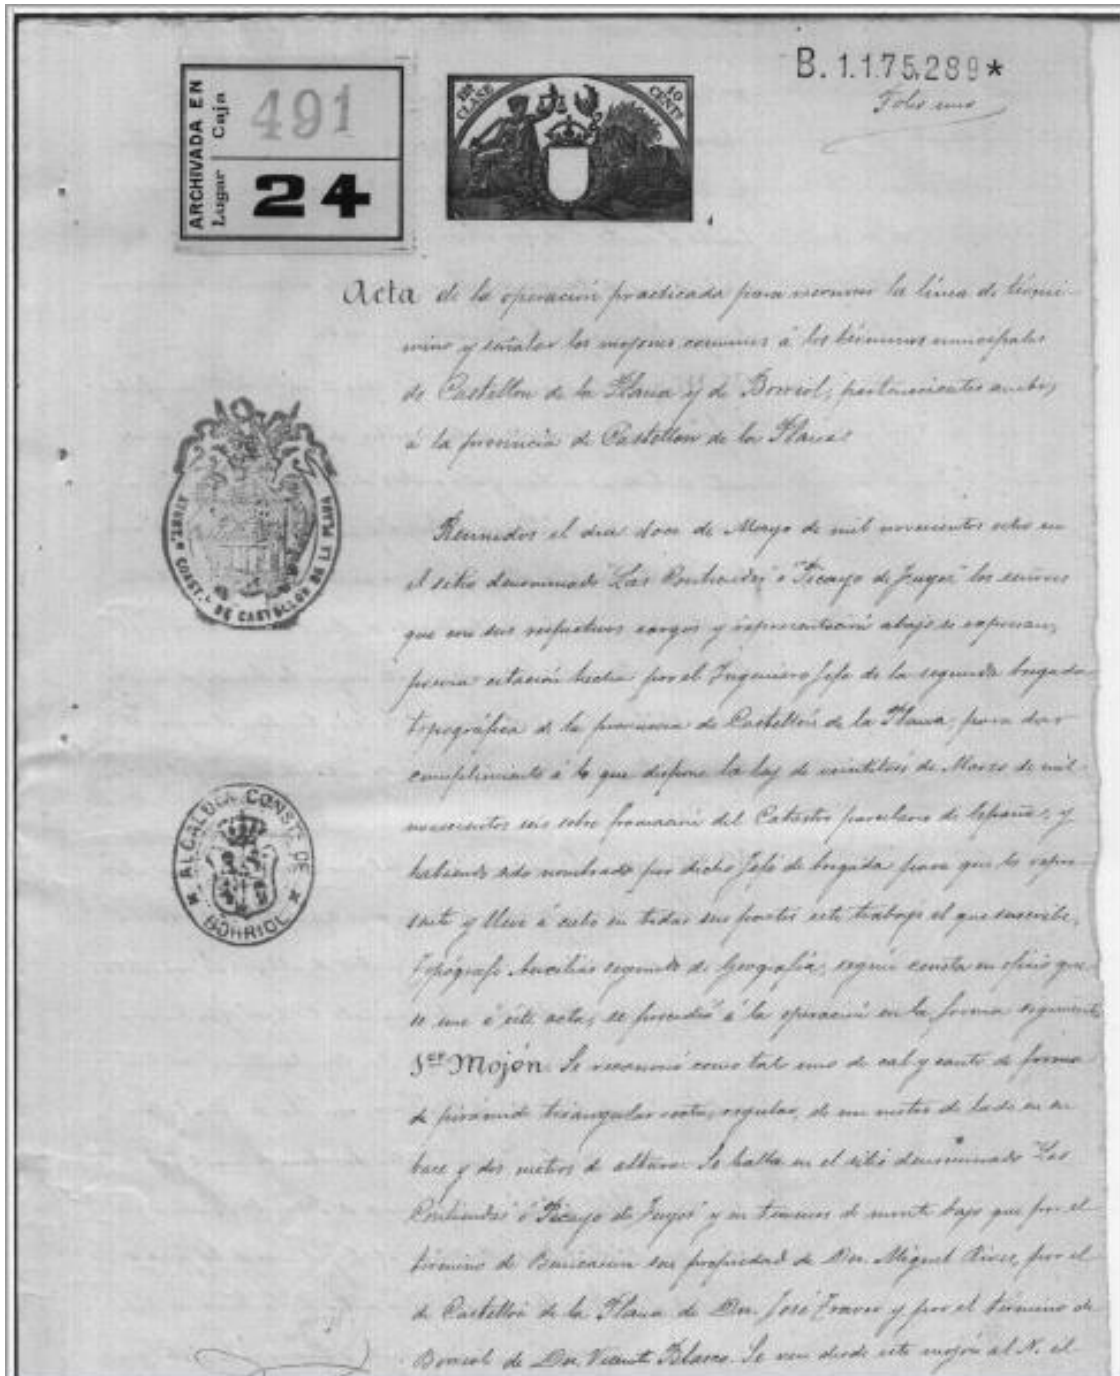 B.1.175.289*
Folio uno
ARCHIVADA EN
Caja 491
Lugar 24
12ª CLASE
10 CENTS
Acta de la operación practicada para reconocer la línea de térmi-
mino y señalar los mojones comunes á los términos municipales
de Castellón de la Plana y de Borriol, pertenecientes ambos,
á la provincia de Castellón de la Plana.
AYUNT.º CONST.L DE CASTELLON DE LA PLANA
Reunidos el día doce de Mayo de mil novecientos ocho en
el sitio denominado "Las Contiendas" ó "Picayo de Juyos" los señores
que con sus respectivos cargos y representación abajo se expresan,
previa citación hecha por el Ingeniero Jefe de la segunda brigada
topográfica de la provincia de Castellón de la Plana, para dar
cumplimiento á lo que dispone la ley de veintitrés de Marzo de mil
novecientos seis sobre formación del Catastro parcelario de España, y
ALCALDIA CONST.L DE BORRIOL
habiendo sido nombrado por dicho Jefe de brigada para que le repre-
sente y lleve á cabo en todas sus partes este trabajo el que suscribe,
Topógrafo Auxiliar segundo de Geografía, según consta en oficio que
se une á este acta, se procedió á la operación en la forma siguiente:
1er Mojón. Se reconoció como tal uno de cal y canto de forma
de pirámide triangular recta, regular, de un metro de lado en su
base y dos metros de altura. Se halla en el sitio denominado "Las
Contiendas" ó "Picayo de Juyos" y en terrenos de monte bajo que por el
término de Benicasim son propiedad de Don Miguel Rives, por el
de Castellón de la Plana de Don José Traver y por el término de
Borriol de Don Vicente Blasco. Se ven desde este mojón al N. el